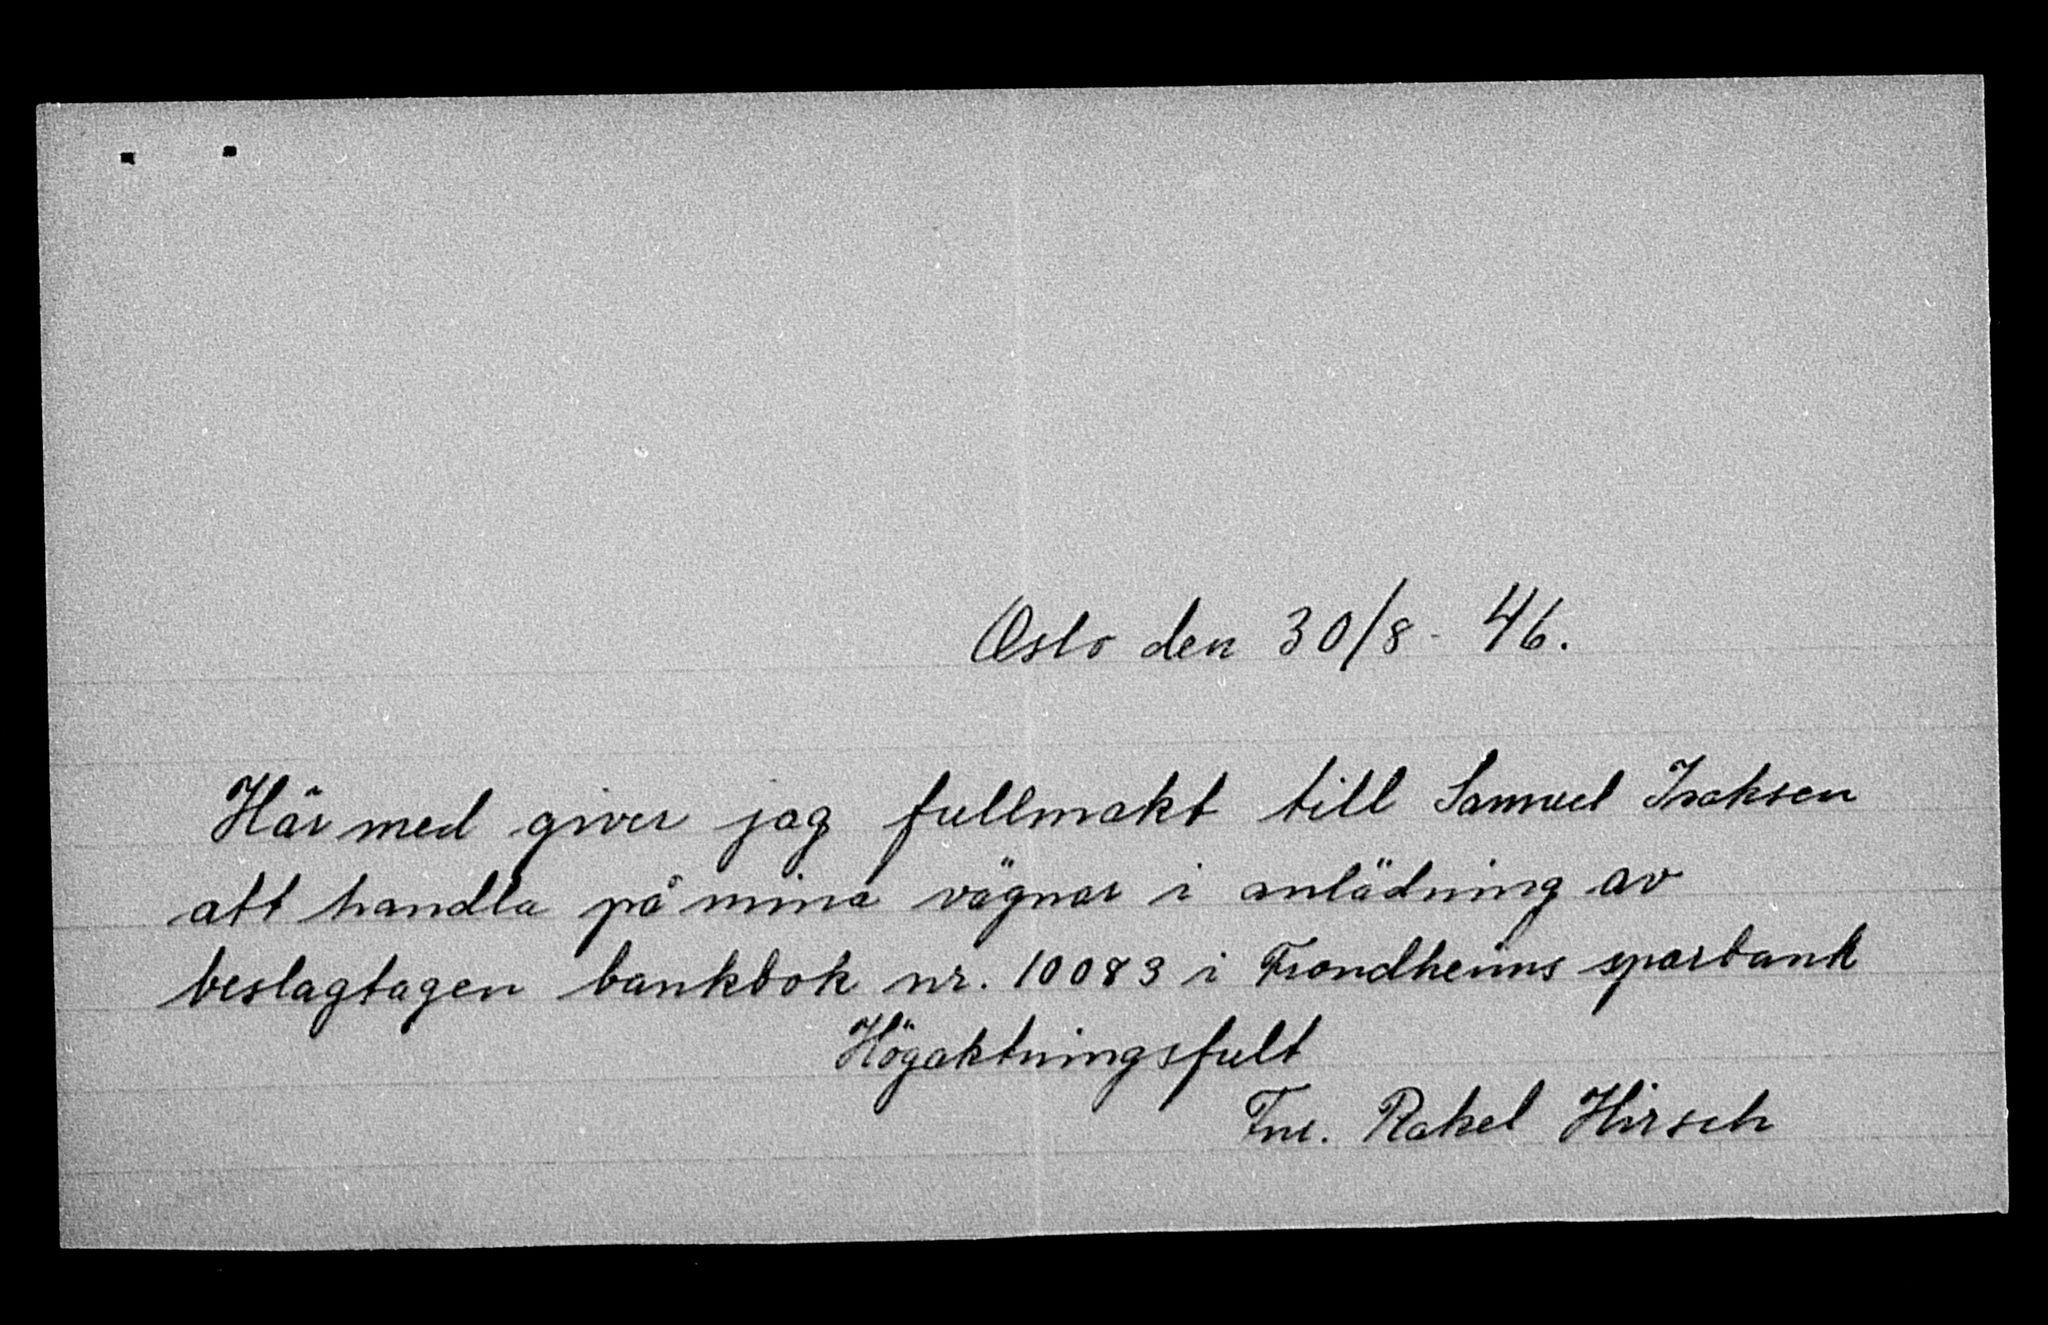 Oslo den 30/8 - 46.
Härmed giver jag fullmakt till Samuel Isaksen
att handla på mina vägnar i anlädning av
beslagtagen bankbok nr. 10083 i Trondheims sparbank
Högaktningsfult
Fru. Rakel Hirsch